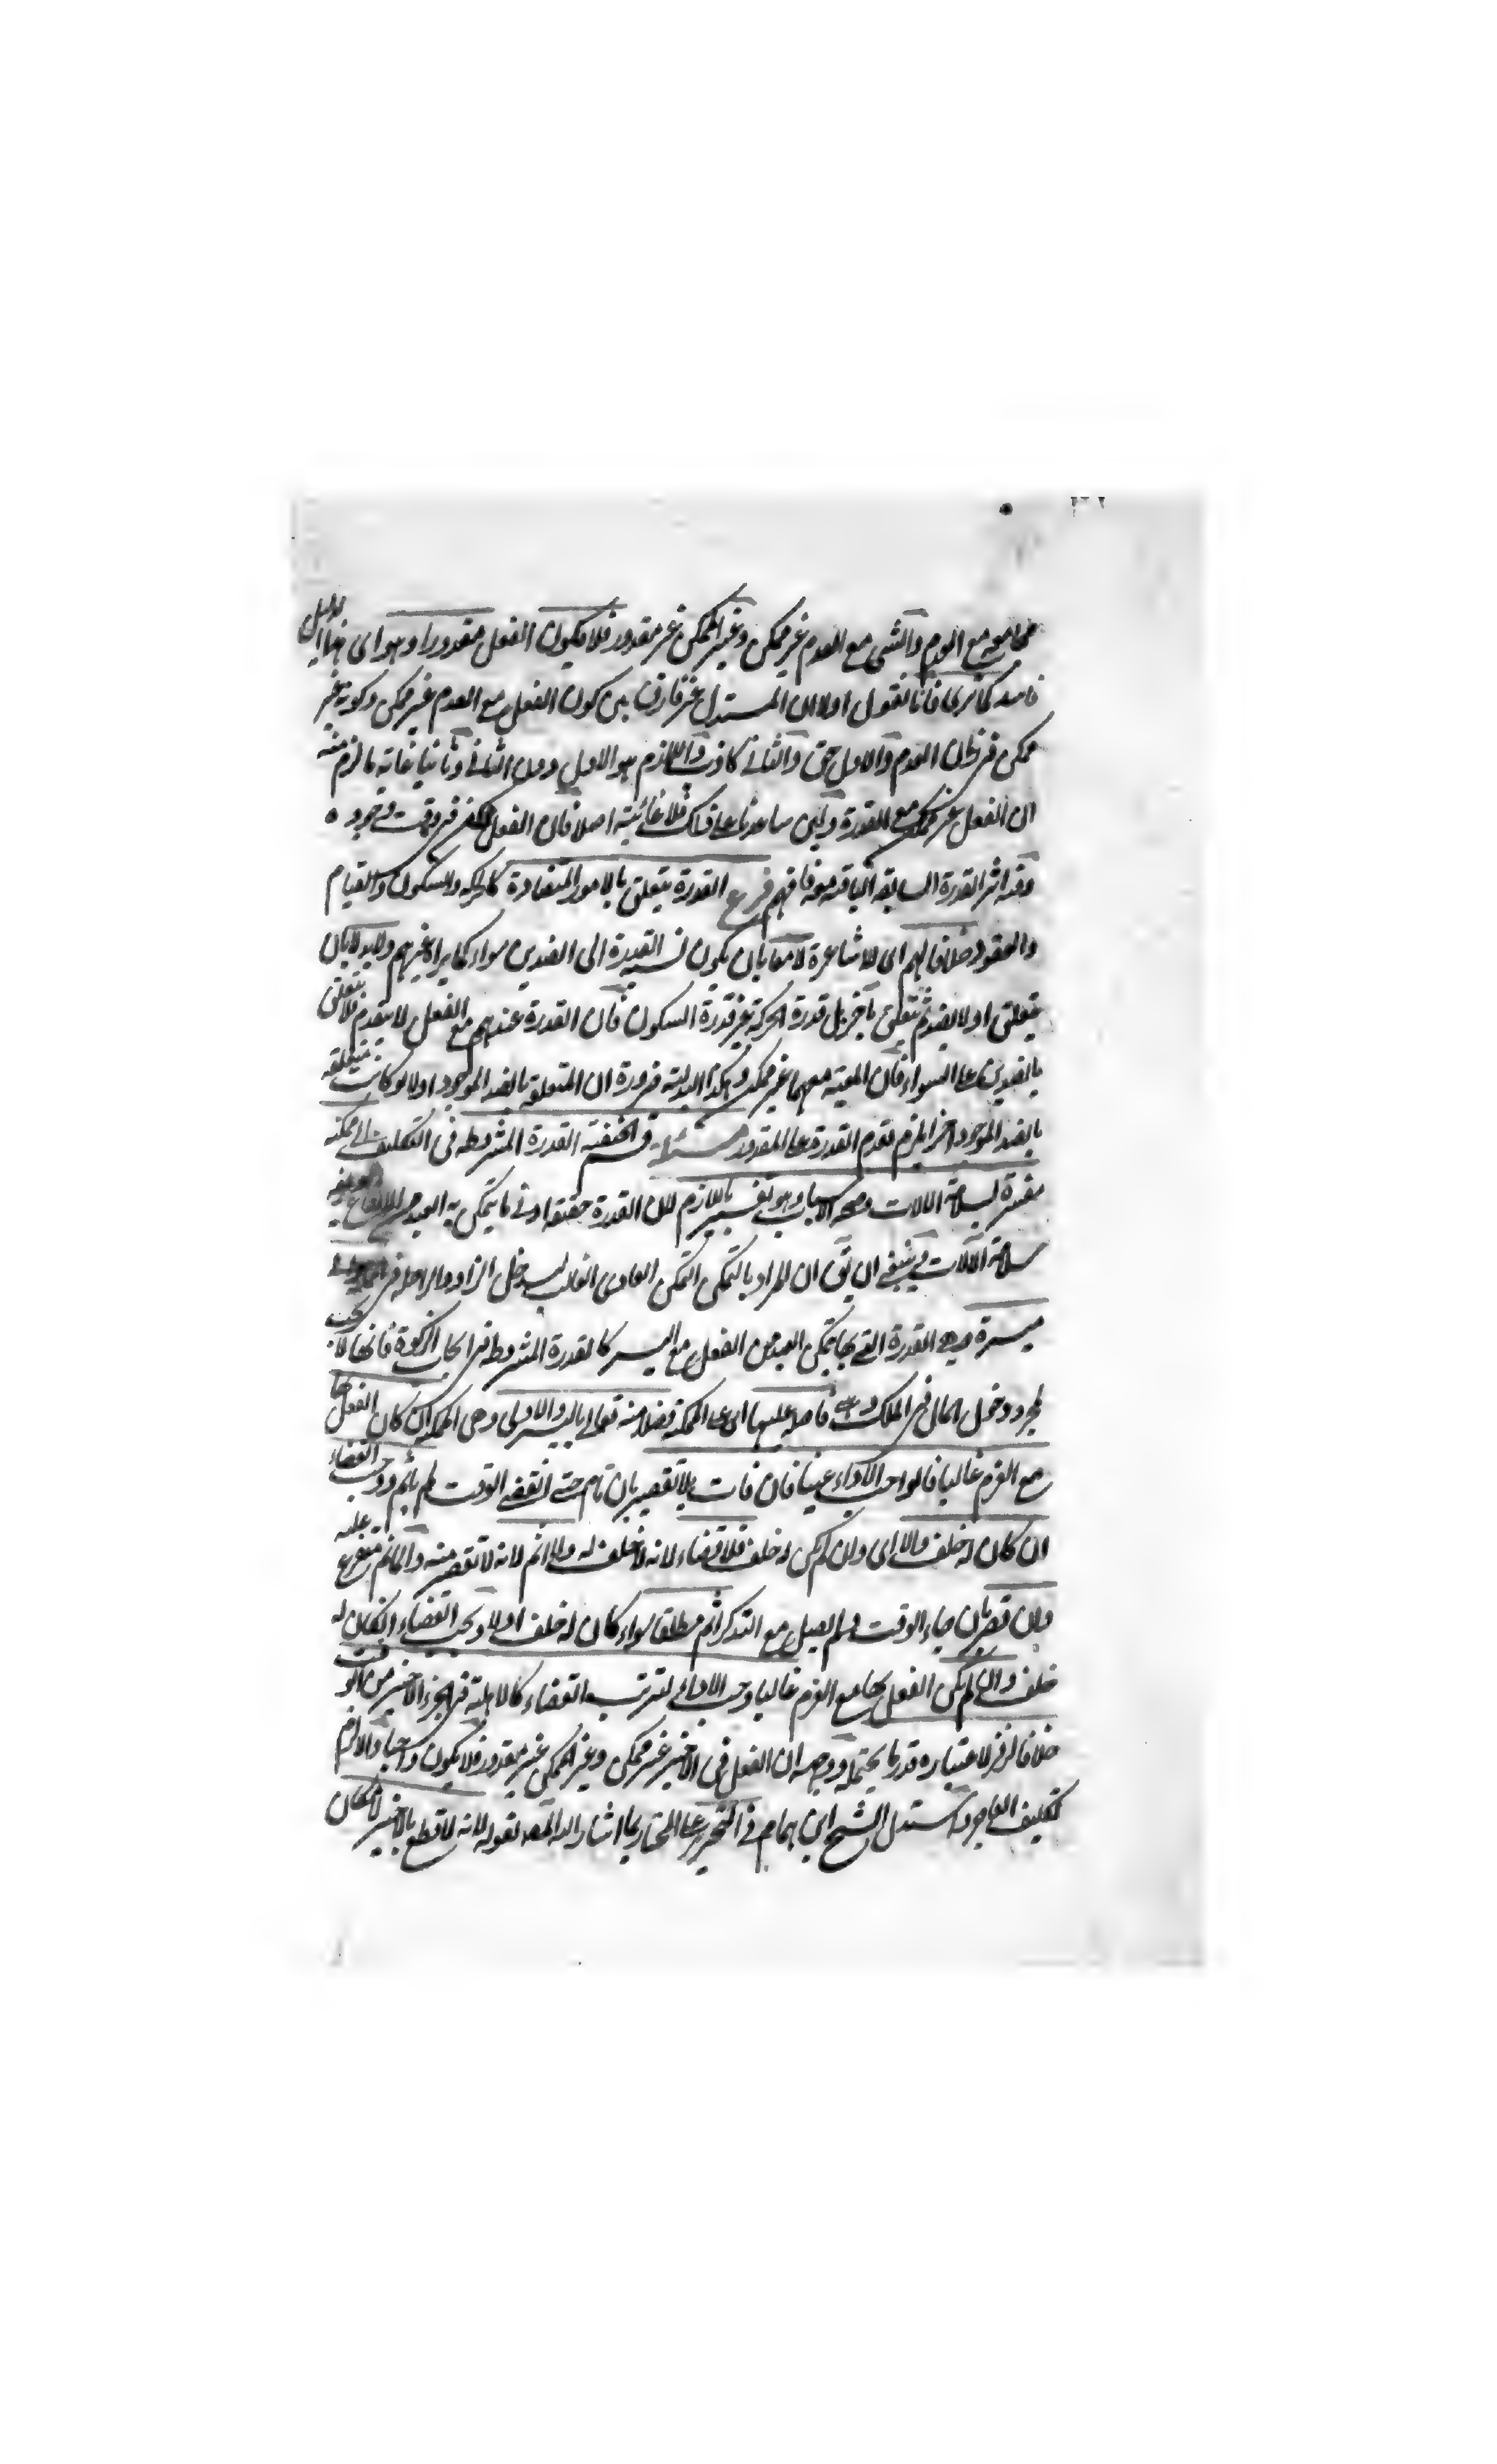 مجامعا مع العدم والشئ مع العدم غير ممكن وغير الممكن غير مقدور فلا يكون الفعل مقدورا وهو اى هذا الدليل
فاسد كما ترى فانا نقول اولا ان المستدل غير فارق بين كون الفعل مع العدم غير ممكن وكونه غير
ممكن فى زمان العدم والاول حق والثانى كاذب واللازم هو الاول دون الثانى وثانيا غاية ما لزم منه
ان الفعل غير ممكن مع القدرة ولئن ساعدنا على ذلك فلا غائبية اصلا فان الفعل ممكن فى وقت وجوده
وقد اثر القدرة السابقة الباقية معه فافهم فرع القدرة يتعلق بالامور المتضادة كالحركة والسكون والقيام
والعقود خلافا لهم اى للاشاعرة لا معا بان يكون نسبة القدرة الى الضدين سواء كما يراه غيرهم ولا بدلا بان
يتعلق اولا بضد ثم يتعلق بآخر بل قدرة الحركة غير قدرة السكون فان القدرة عندهم مع الفعل لا يتقدم فلا يتعلق
بالضدين على السواء فان المعية معهما غير ممكن وهكذا البدلية ضرورة ان المتعلقة بالضد الموجود اولا لو كانت متعلقة
بالضد الموجود آخرا يلزم تقدم القدرة على المقدور مسئلة قسم الحنفية القدرة المشروطة فى التكليف الى ممكنة
مفسرة بسلامة الالات وصحة الاسباب وهو تفسير باللازم لان القدرة حقيقة ادنى ما يتمكن به العبد من
سلامة الالات وينبغى ان يق ان المراد بالتمكن التمكن العادى الغالب ليدخل الزاد والراحلة فى
ميسرة وهى القدرة التى بها يتمكن العبد من الفعل مع اليسر كالقدرة المشروطة فى ايجاب الزكوة فانها لا يجب
بمجرد دخول المال فى الملك وهى فاضلة عليها اى على الممكنة فضلا منه تعالى باليسر والاولى وهى الممكنة ان كان الفعل بها
مع العزم غالبا فالواجب الاداء عينا فان فات بلا تقصير بان نام حتى انقضى الوقت لم يأثم ووجب القضاء
ان كان له خلف والا اى وان لم يكن له خلف فلا قضاء لانه لا خلف له ولا اثم لانه لا تقصير منه والمأثم متفرع عليه
وان قصر بان جاء الوقت ولم يصل مع التذكر اثم مطلقا سواء كان له خلف اولا ويجب القضاء ان كان له
خلف وان لم يكن الفعل بها مع العزم غالبا وجب الاداء لترتب القضاء كالاهلية فى الجزء الاخير من الوقت
خلافا لزفر لاعتباره قدرا يحتمله ووجهه ان الفعل فى الاخير غير ممكن وغير الممكن غير مقدور فلا يكون واجبا والا لزم
تكليف العاجز واستدل الشيخ ابن همام فى التحرير على المختار بما اشار اليه المصـ بقوله لانه لا قطع بالاخير لامكان